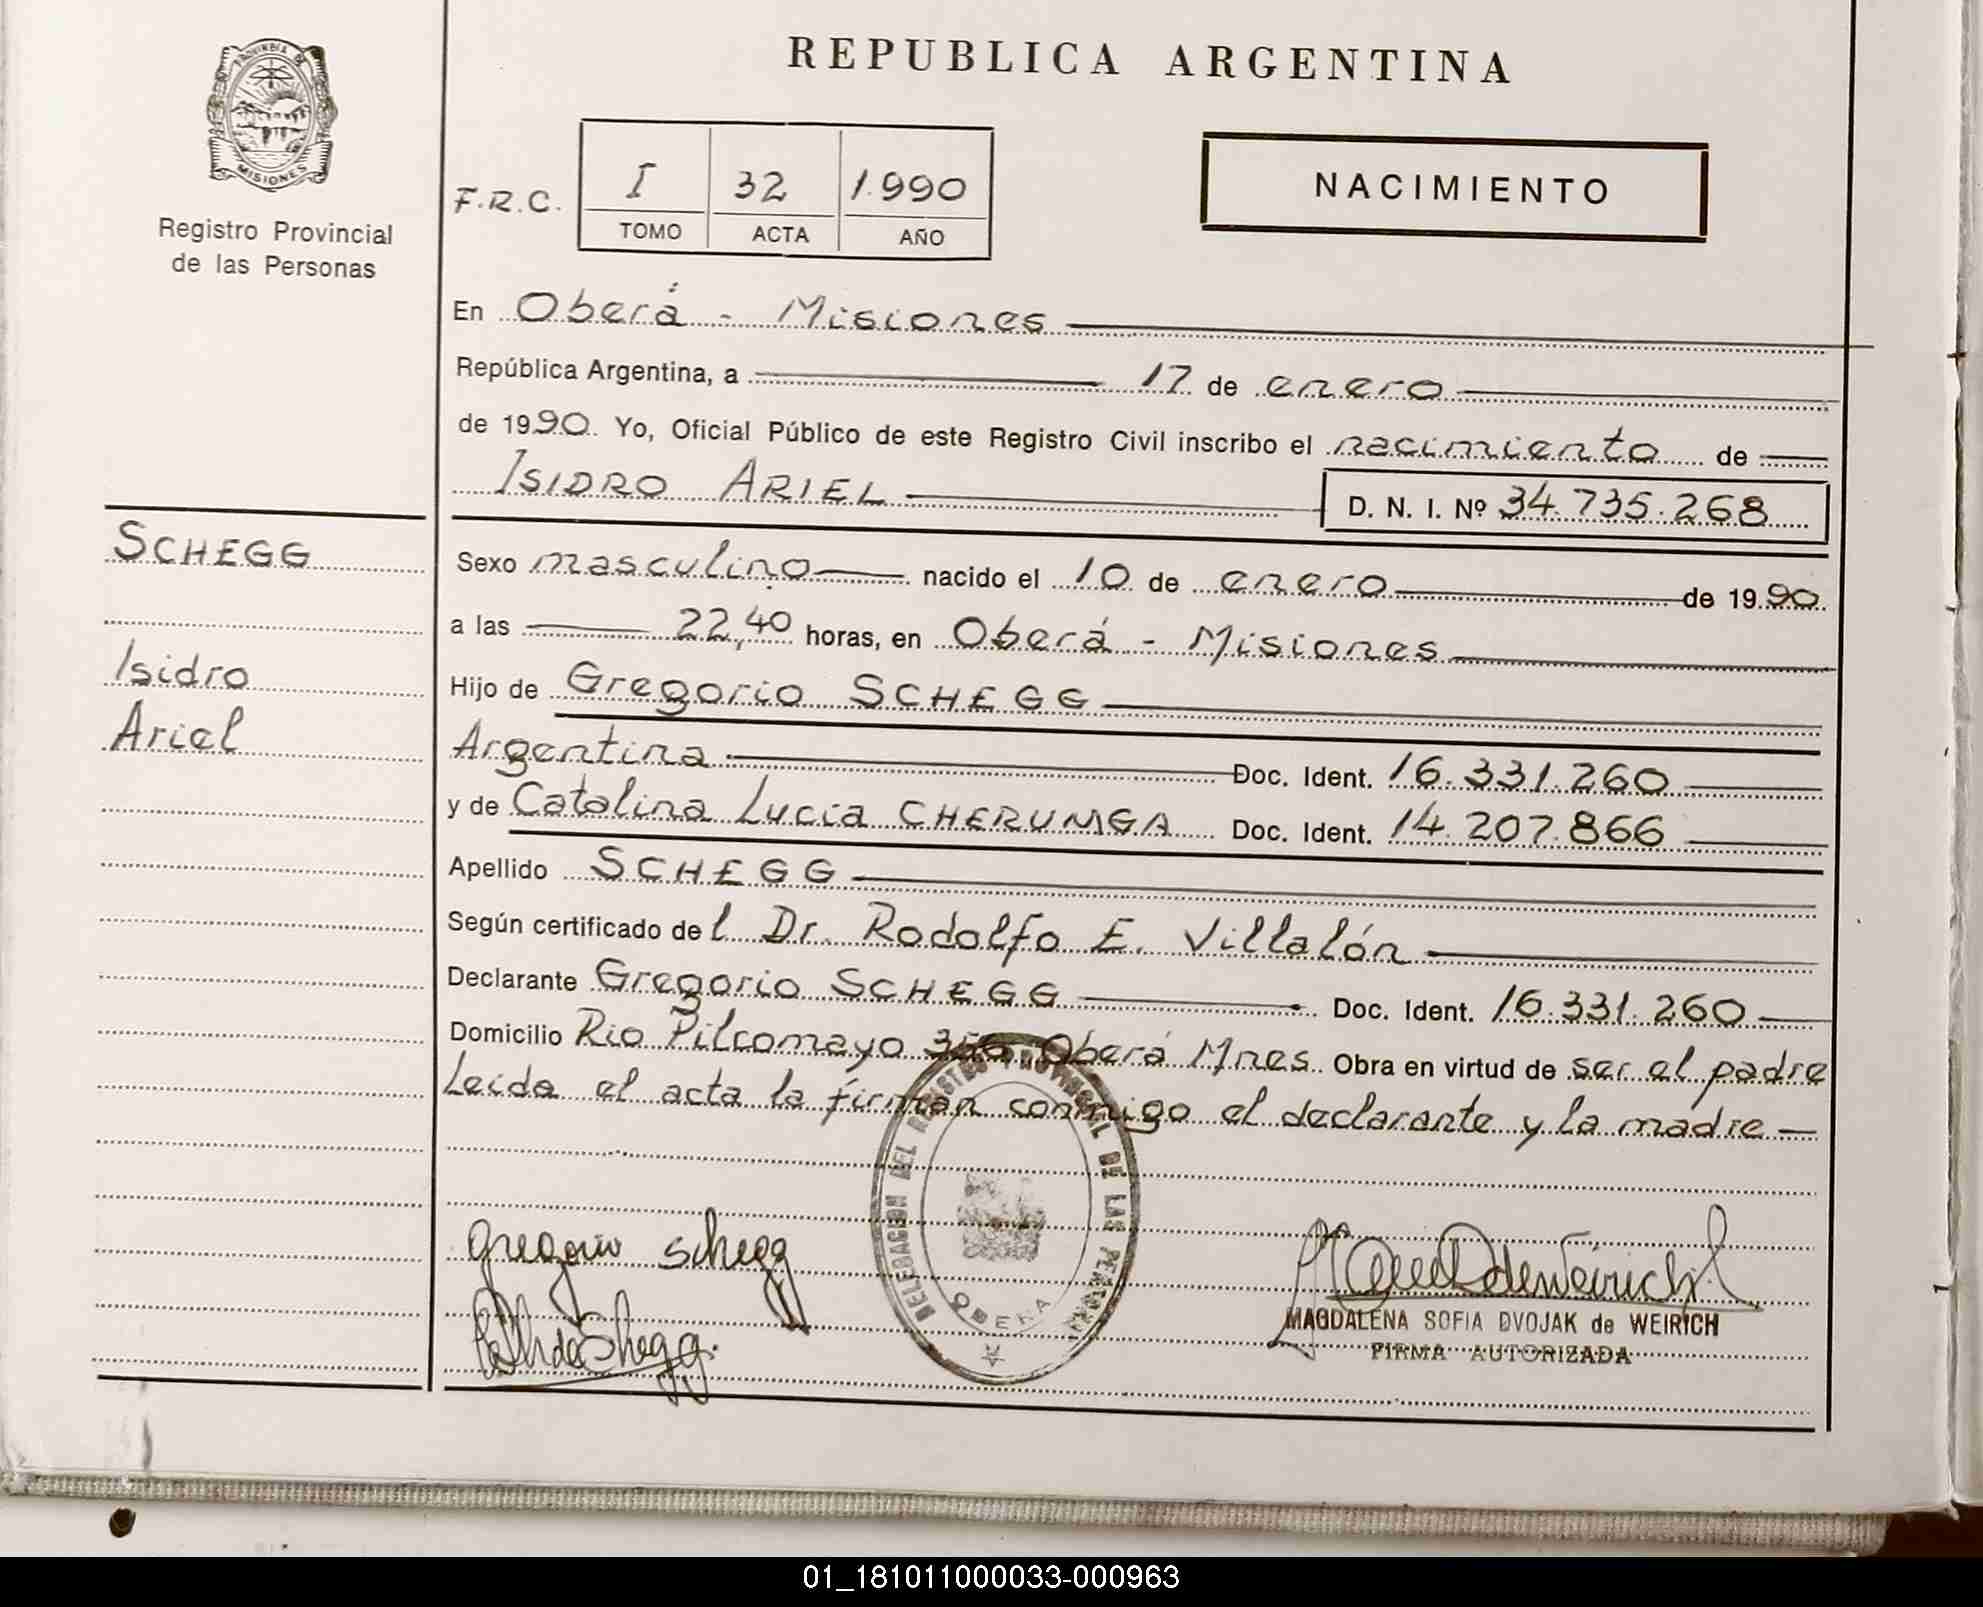 REPUBLICA ARGENTINA
PROVINCIA DE
MISIONES
Registro Provincial
de las Personas
F.R.C.
I 32 1.990
TOMO ACTA AÑO
NACIMIENTO
En Oberá - Misiones
República Argentina, a 17 de enero
de 1990. Yo, Oficial Público de este Registro Civil inscribo el nacimiento de
ISIDRO ARIEL D. N. I. Nº 34.735.268
SCHEGG
Isidro
Ariel
Sexo masculino nacido el 10 de enero de 1990.
a las 22,40 horas, en Oberá - Misiones
Hijo de Gregorio SCHEGG
Argentina Doc. Ident. 16.331.260
y de Catalina Lucia CHERUMGA Doc. Ident. 14.207.866
Apellido SCHEGG
Según certificado del Dr. Rodolfo E. Villalón
Declarante Gregorio SCHEGG Doc. Ident. 16.331.260
Domicilio Rio Pilcomayo Oberá Mnes. Obra en virtud de ser el padre
Leida el acta la firman conmigo el declarante y la madre
DELEGACION DEL REGISTRO PROVINCIAL DE LAS PERSONAS
OBERA
Gregorio Schegg
MAGDALENA SOFIA DVOJAK de WEIRICH
FIRMA AUTORIZADA
01_181011000033-000963